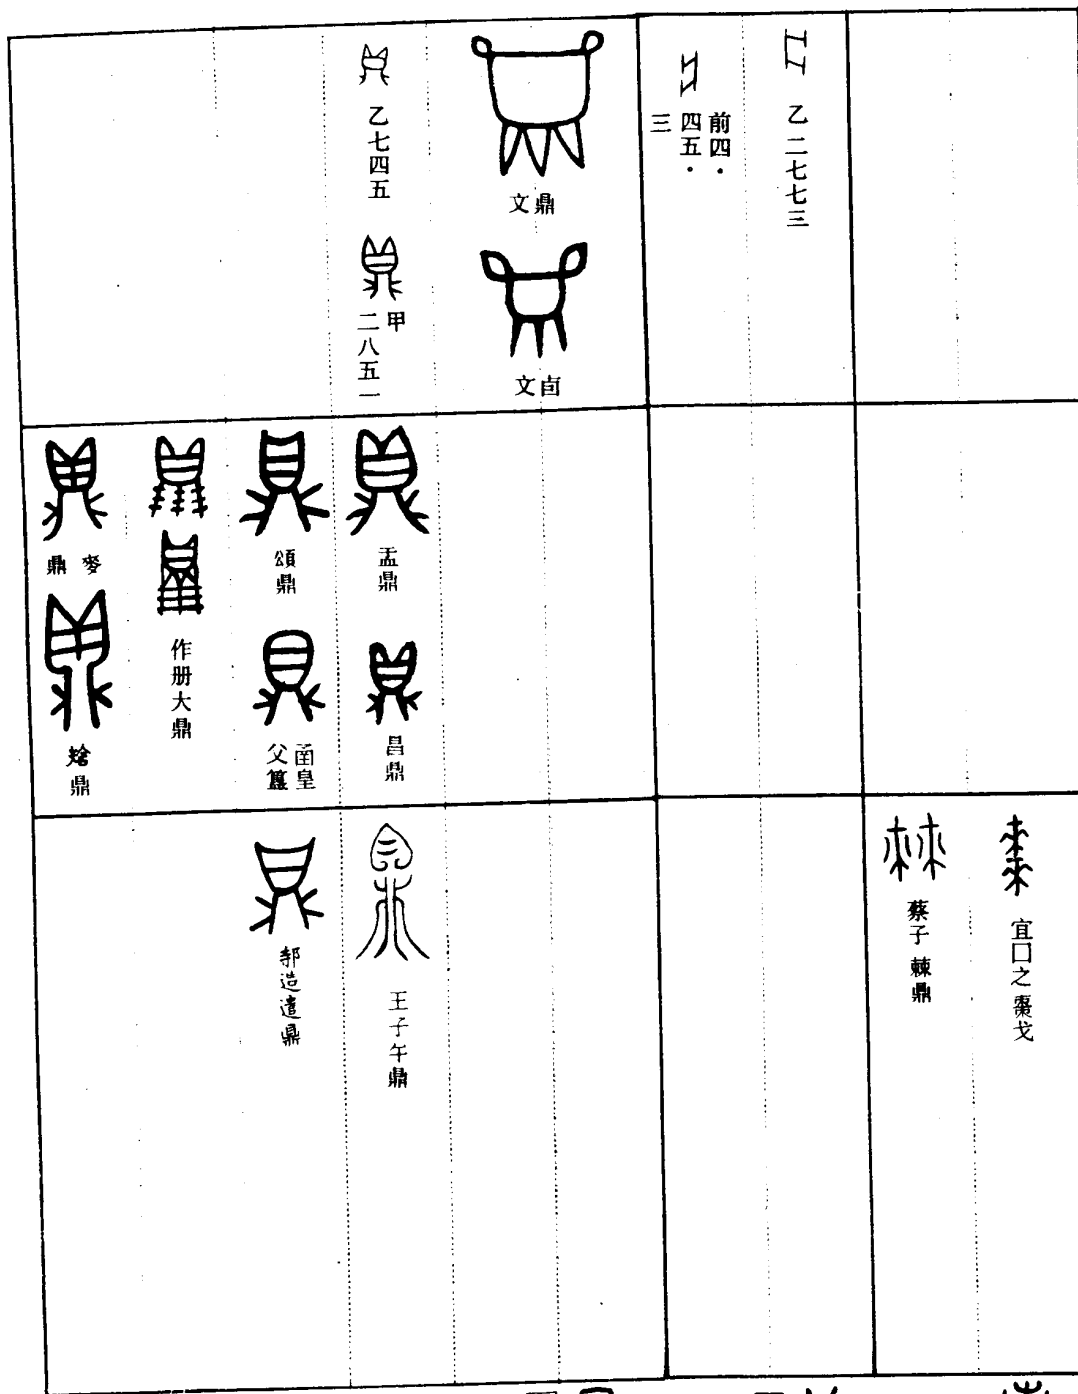 乙二七七三
前四·
四五·
三
鼎文
卣文
乙七四五
甲
二八五一
盂鼎
昌鼎
頌鼎
圅皇
父簋
作册大鼎
麥鼎
鼎
宜口之棗戈
蔡子棘鼎
王子午鼎
造遣鼎